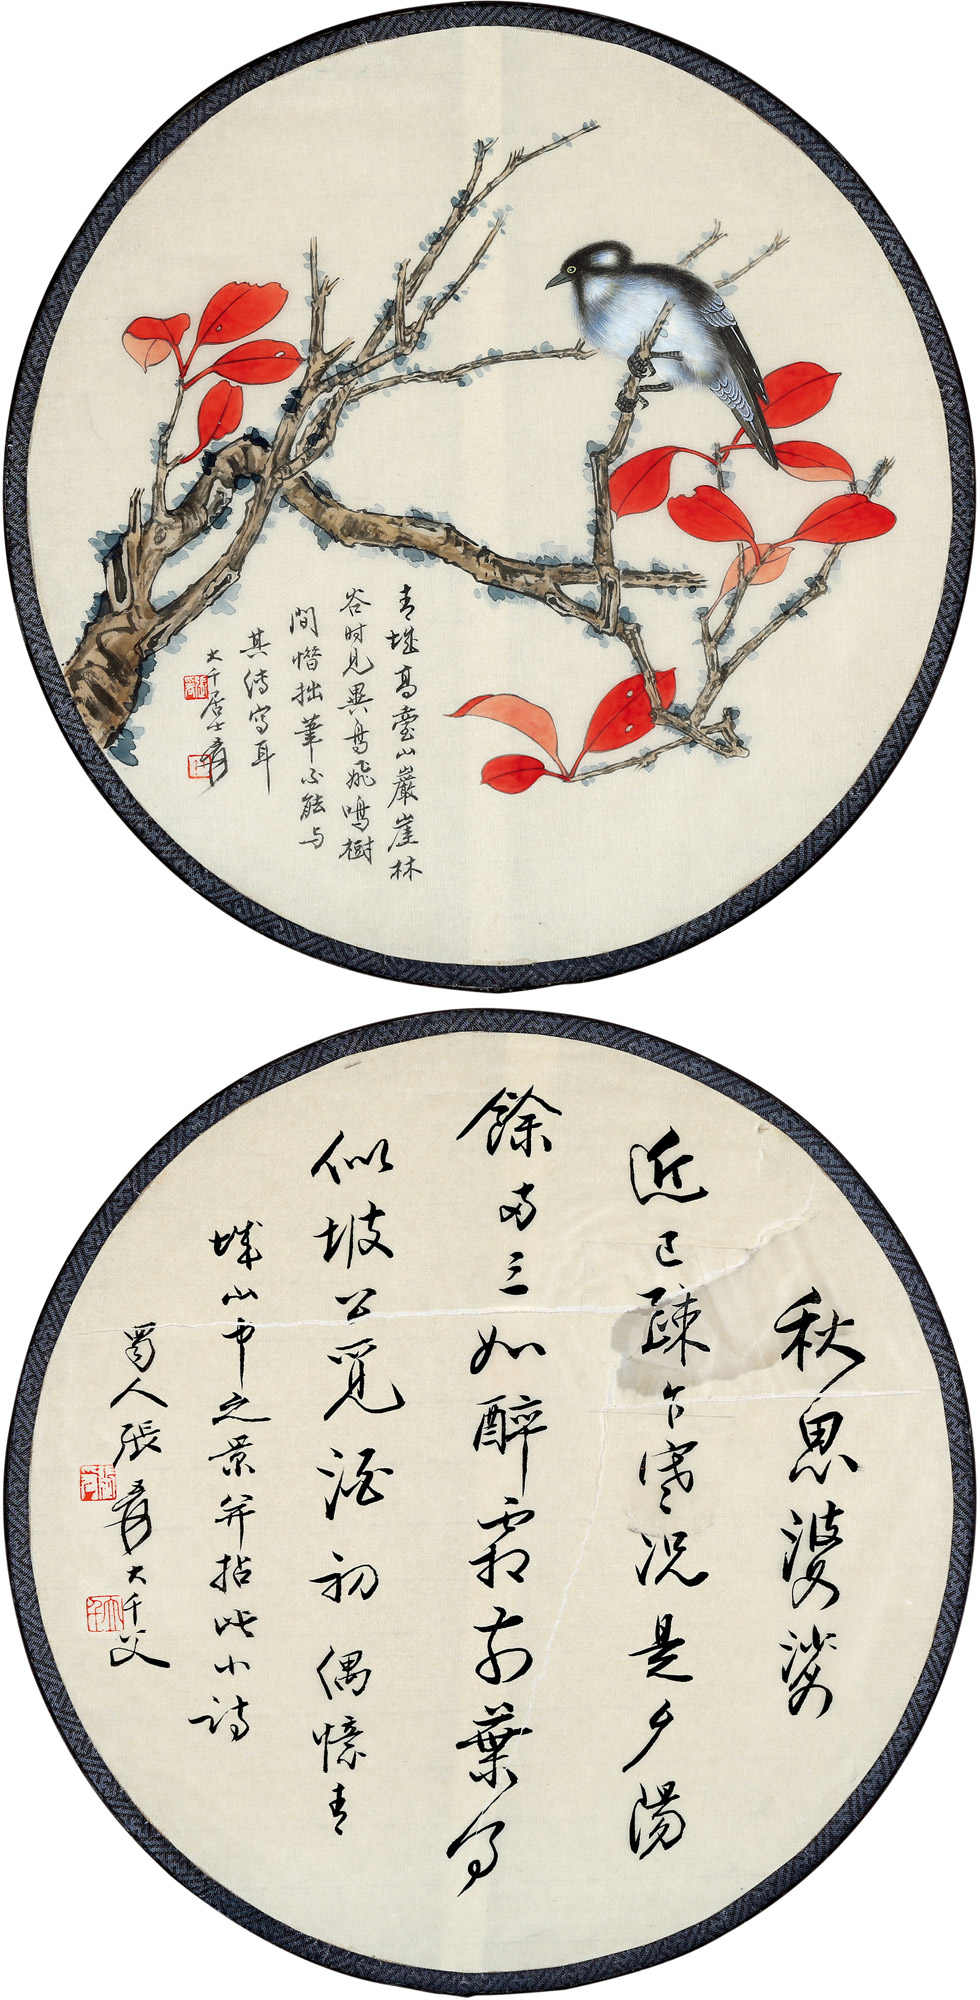 青城高臺山巖崖林
谷時見異鳥飛鳴樹
間惜拙筆不能与
其傳寫耳
大千居士爰
秋思婆娑
近已疎乍寒況是夕陽
餘兩三如醉霜前葉
似坡公覓酒初 偶憶青
城山中之景并拈此小詩
蜀人張爰大千父